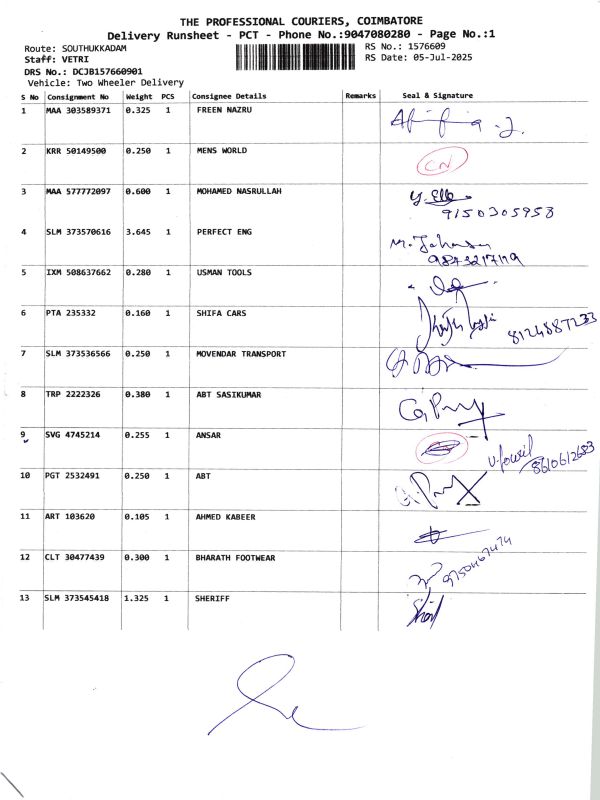 THE PROFESSIONAL COURIERS, COIMBATORE
Delivery Runsheet - PCT - Phone No.:9047080280 - Page No.:1
Route: SOUTHUKKADAM RS No.: 1576609
Staff: VETRI RS Date: 05-Jul-2025
DRS No.: DCJB157660901
Vehicle: Two Wheeler Delivery
S No Consignment No Weight PCS Consignee Details Remarks Seal & Signature
1 MAA 303589371 0.325 1 FREEN NAZRU
2 KRR 50149500 0.250 1 MENS WORLD CN
3 MAA 577772097 0.600 1 MOHAMED NASRULLAH
9150305958
4 SLM 373570616 3.645 1 PERFECT ENG
9843217119
5 IXM 508637662 0.280 1 USMAN TOOLS
6 PTA 235332 0.160 1 SHIFA CARS
8124887233
7 SLM 373536566 0.250 1 MOVENDAR TRANSPORT
8 TRP 2222326 0.380 1 ABT SASIKUMAR
9 SVG 4745214 0.255 1 ANSAR
8610612683
10 PGT 2532491 0.250 1 ABT
11 ART 103620 0.105 1 AHMED KABEER
12 CLT 30477439 0.300 1 BHARATH FOOTWEAR
9750467474
13 SLM 373545418 1.325 1 SHERIFF